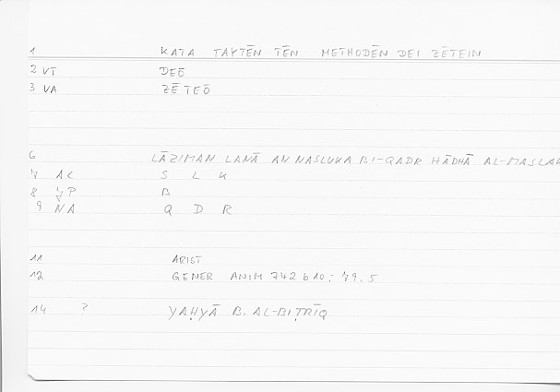 1 KATA TAYTĒN TĒN METHODĒN DEI ZĒTEIN
2 VT DEŌ
3 VA ZĒTEŌ
6 LĀZIMAN LANĀ AN NASLUKA BI-QADR HĀDHĀ AL-MASLAK
7 AC S L K
8 YP B
9 NA Q D R
11 ARIST
12 GENER ANIM 742 b 10: 79.5
14 ? YAḤYĀ B. AL-BIṬRĪQ